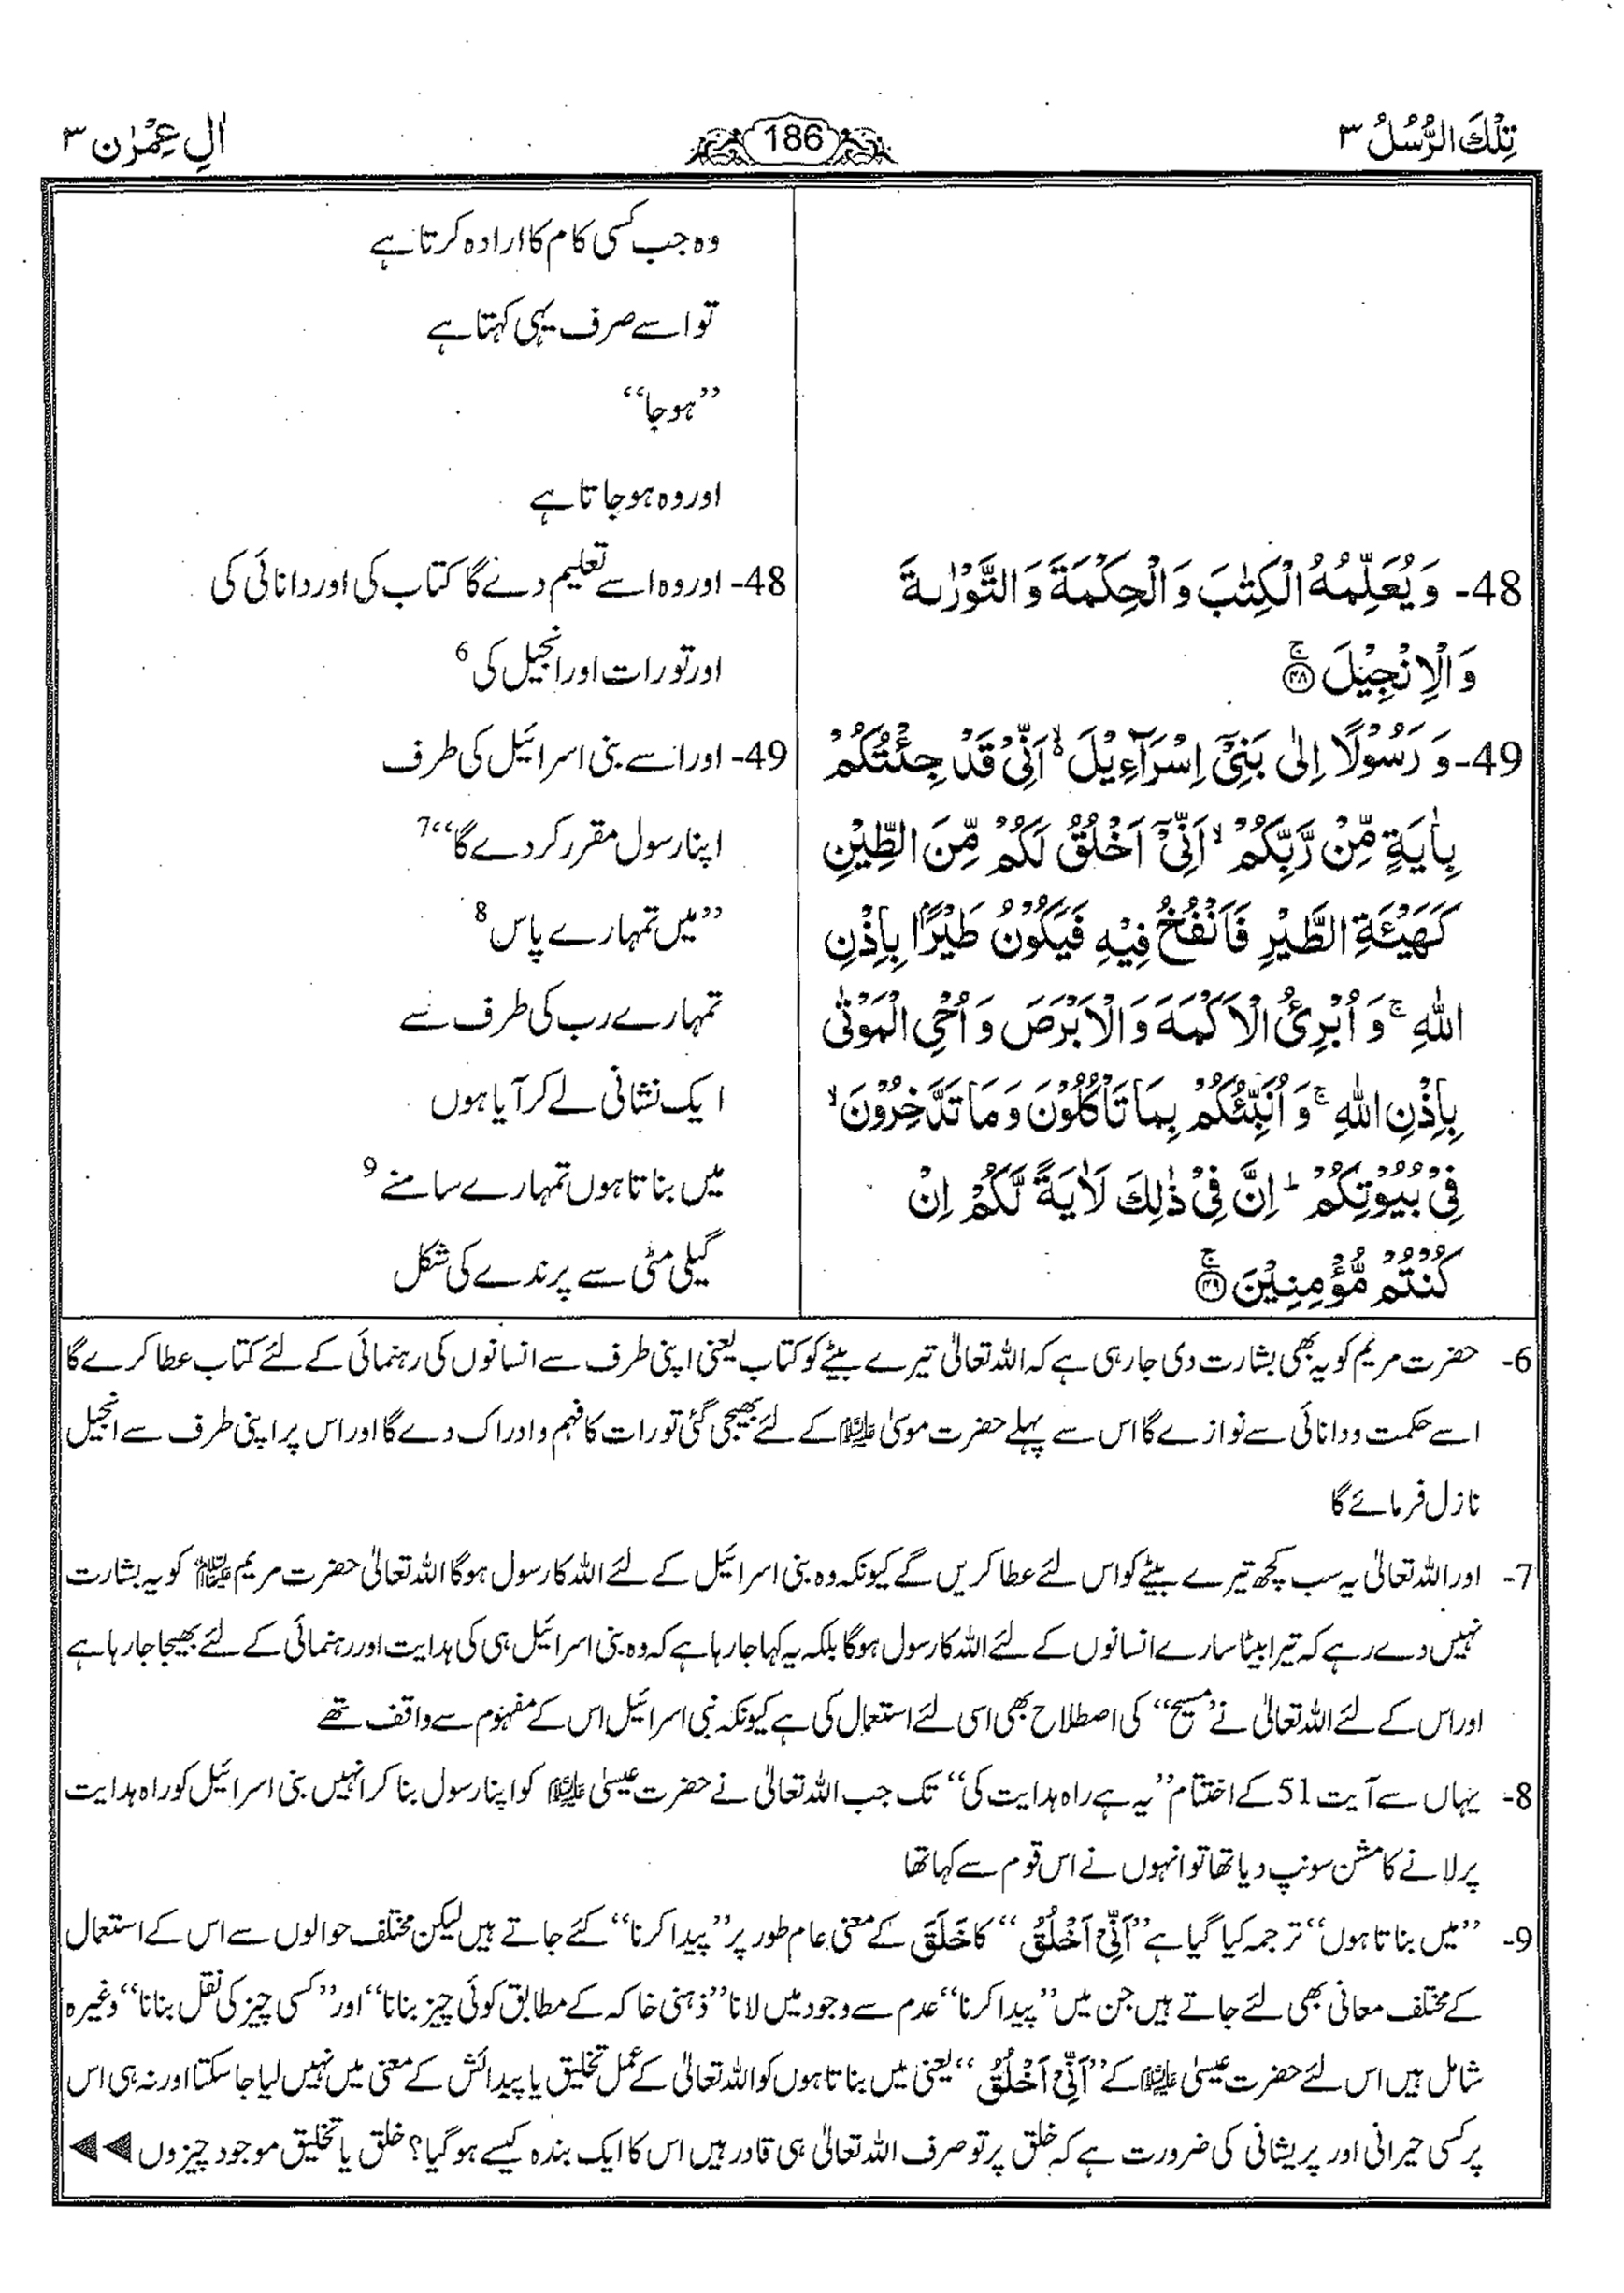 تِلْكَ الرُّسُلُ ۳
186
اٰلِ عِمْرٰن ۳
48- وَ يُعَلِّمُهُ الْكِتٰبَ وَ الْحِكْمَةَ وَ التَّوْرٰىةَ
وَ الْاِنْجِيْلَ ۚ‏﴿۴۸﴾
49- وَ رَسُوْلًا اِلٰى بَنِيْۤ اِسْرَآءِيْلَ ۙ اَنِّيْ قَدْ جِئْتُكُمْ
بِاٰيَةٍ مِّنْ رَّبِّكُمْ ۙ اَنِّيْۤ اَخْلُقُ لَكُمْ مِّنَ الطِّيْنِ
كَهَيْـَٔةِ الطَّيْرِ فَاَنْفُخُ فِيْهِ فَيَكُوْنُ طَيْرًۢا بِاِذْنِ
اللّٰهِ ۚ وَ اُبْرِئُ الْاَكْمَهَ وَ الْاَبْرَصَ وَ اُحْيِ الْمَوْتٰى
بِاِذْنِ اللّٰهِ ۚ وَ اُنَبِّئُكُمْ بِمَا تَاْكُلُوْنَ وَ مَا تَدَّخِرُوْنَ ۙ
فِيْ بُيُوْتِكُمْ ؕ اِنَّ فِيْ ذٰلِكَ لَاٰيَةً لَّكُمْ اِنْ
كُنْتُمْ مُّؤْمِنِيْنَ ۚ‏﴿۴۹﴾
وہ جب کسی کام کا ارادہ کرتا ہے
تو اسے صرف یہی کہتا ہے
”ہو جا“
اور وہ ہو جاتا ہے
48- اور وہ اسے تعلیم دے گا کتاب کی اور دانائی کی
اور تورات اور انجیل کی 6
49- اور اسے بنی اسرائیل کی طرف
اپنا رسول مقرر کر دے گا“ 7
”میں تمہارے پاس 8
تمہارے رب کی طرف سے
ایک نشانی لے کر آیا ہوں
میں بناتا ہوں تمہارے سامنے 9
گیلی مٹی سے پرندے کی شکل
6- حضرت مریم کو یہ بھی بشارت دی جا رہی ہے کہ اللہ تعالیٰ تیرے بیٹے کو کتاب یعنی اپنی طرف سے انسانوں کی رہنمائی کے لئے کتاب عطا کرے گا
اسے حکمت و دانائی سے نوازے گا اس سے پہلے حضرت موسیٰ علیہ السلام کے لئے بھیجی گئی تورات کا فہم و ادراک دے گا اور اس پر اپنی طرف سے انجیل
نازل فرمائے گا
7- اور اللہ تعالیٰ یہ سب کچھ تیرے بیٹے کو اس لئے عطا کریں گے کیونکہ وہ بنی اسرائیل کے لئے اللہ کا رسول ہوگا اللہ تعالیٰ حضرت مریم کو یہ بشارت
نہیں دے رہے کہ تیرا بیٹا سارے انسانوں کے لئے اللہ کا رسول ہوگا بلکہ یہ کہا جا رہا ہے کہ وہ بنی اسرائیل ہی کی ہدایت اور رہنمائی کے لئے بھیجا جا رہا ہے
اور اس کے لئے اللہ تعالیٰ نے ”مسیح“ کی اصطلاح بھی اسی لئے استعمال کی ہے کیونکہ نبی اسرائیل اس کے مفہوم سے واقف تھے
8- یہاں سے آیت 51 کے اختتام ”یہ ہے راہ ہدایت کی“ تک جب اللہ تعالیٰ نے حضرت عیسیٰ علیہ السلام کو اپنا رسول بنا کر انہیں بنی اسرائیل کو راہ ہدایت
پر لانے کا مشن سونپ دیا تھا تو انہوں نے اس قوم سے کہا تھا
9- ”میں بناتا ہوں“ ترجمہ کیا گیا ہے ”اَنِّيْۤ اَخْلُقُ“ کا خَلَقَ کے معنی عام طور پر ”پیدا کرنا“ کئے جاتے ہیں لیکن مختلف حوالوں سے اس کے استعمال
کے مختلف معانی بھی لئے جاتے ہیں جن میں ”پیدا کرنا“ عدم سے وجود میں لانا ”ذہنی خاکہ کے مطابق کوئی چیز بنانا“ اور ”کسی چیز کی نقل بنانا“ وغیرہ
شامل ہیں اس لئے حضرت عیسیٰ علیہ السلام کے ”اَنِّيْۤ اَخْلُقُ“ یعنی میں بناتا ہوں کو اللہ تعالیٰ کے عمل تخلیق یا پیدائش کے معنی میں نہیں لیا جا سکتا اور نہ ہی اس
پر کسی حیرانی اور پریشانی کی ضرورت ہے کہ خلق پر تو صرف اللہ تعالیٰ ہی قادر ہیں اس کا ایک بندہ کیسے ہو گیا؟ خلق یا تخلیق موجود چیزوں ◀◀